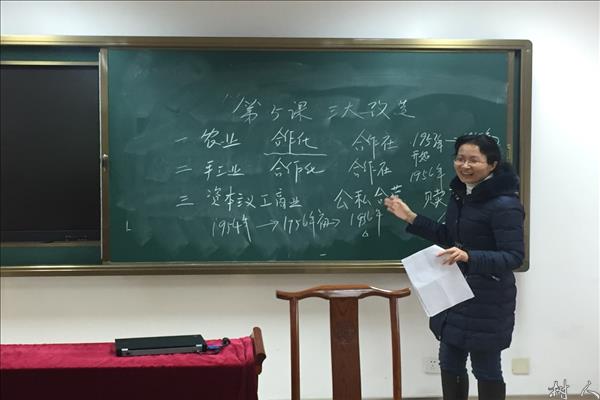 第5课 三大改造
一 农业 合作化 合作社 1953年
开始
1956年
二 手工业 合作化 合作社
三 资本主义工商业 公私合营 赎
1954年→1956年初→1956年
树人